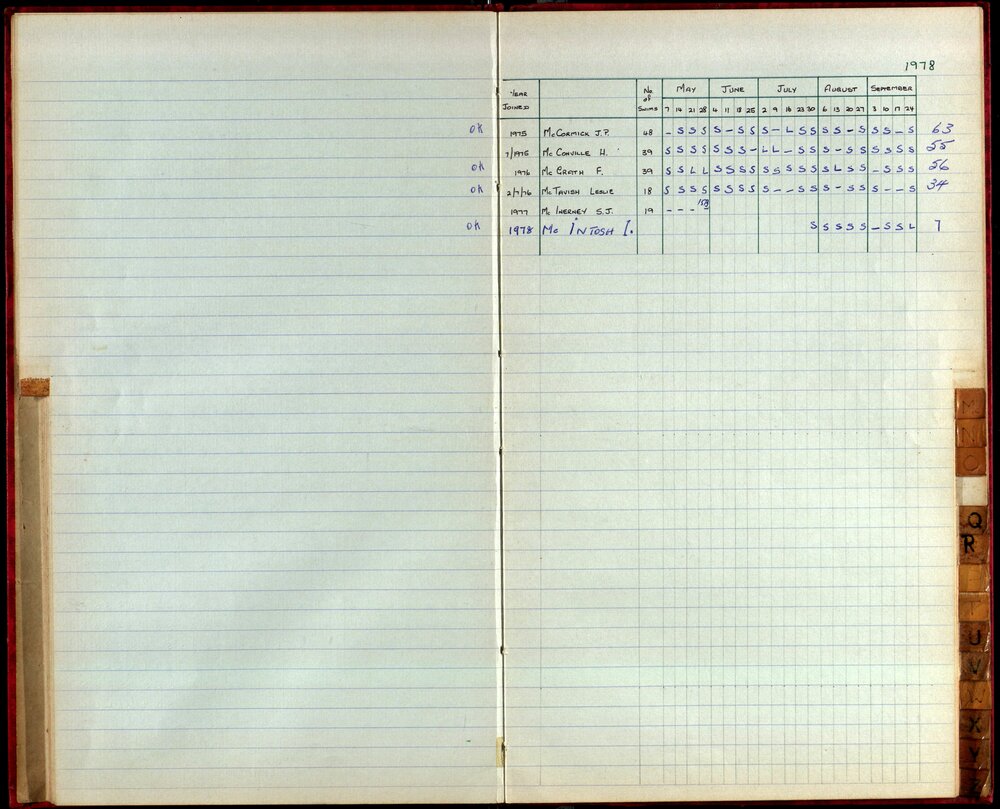 1978
YEAR JOINED No of SWIMS MAY JUNE JULY AUGUST SEPTEMBER
7 14 21 28 4 11 18 25 2 9 16 23 30 6 13 20 27 3 10 17 24
OK 1975 McCORMICK J.P. 48 - S S S S - S S S - L S S S S - S S S - S 63
7/1975 McCONVILLE H. 39 S S S S S S S - L L - S S S - S S S S S S 55
OK 1976 McGRATH F. 39 S S L L S S S S S S S S S S L S S - S S S 56
OK 2/7/76 McTAVISH LESLIE 18 S S S S S S S S S - - S S S - S S S - - S 34
1977 McINERNEY S.J. 19 - - -
OK 1978 Mc INTOSH I. S S S S S - S S L 7
M
N
O
Q
R
U
V
W
X
Y
Z